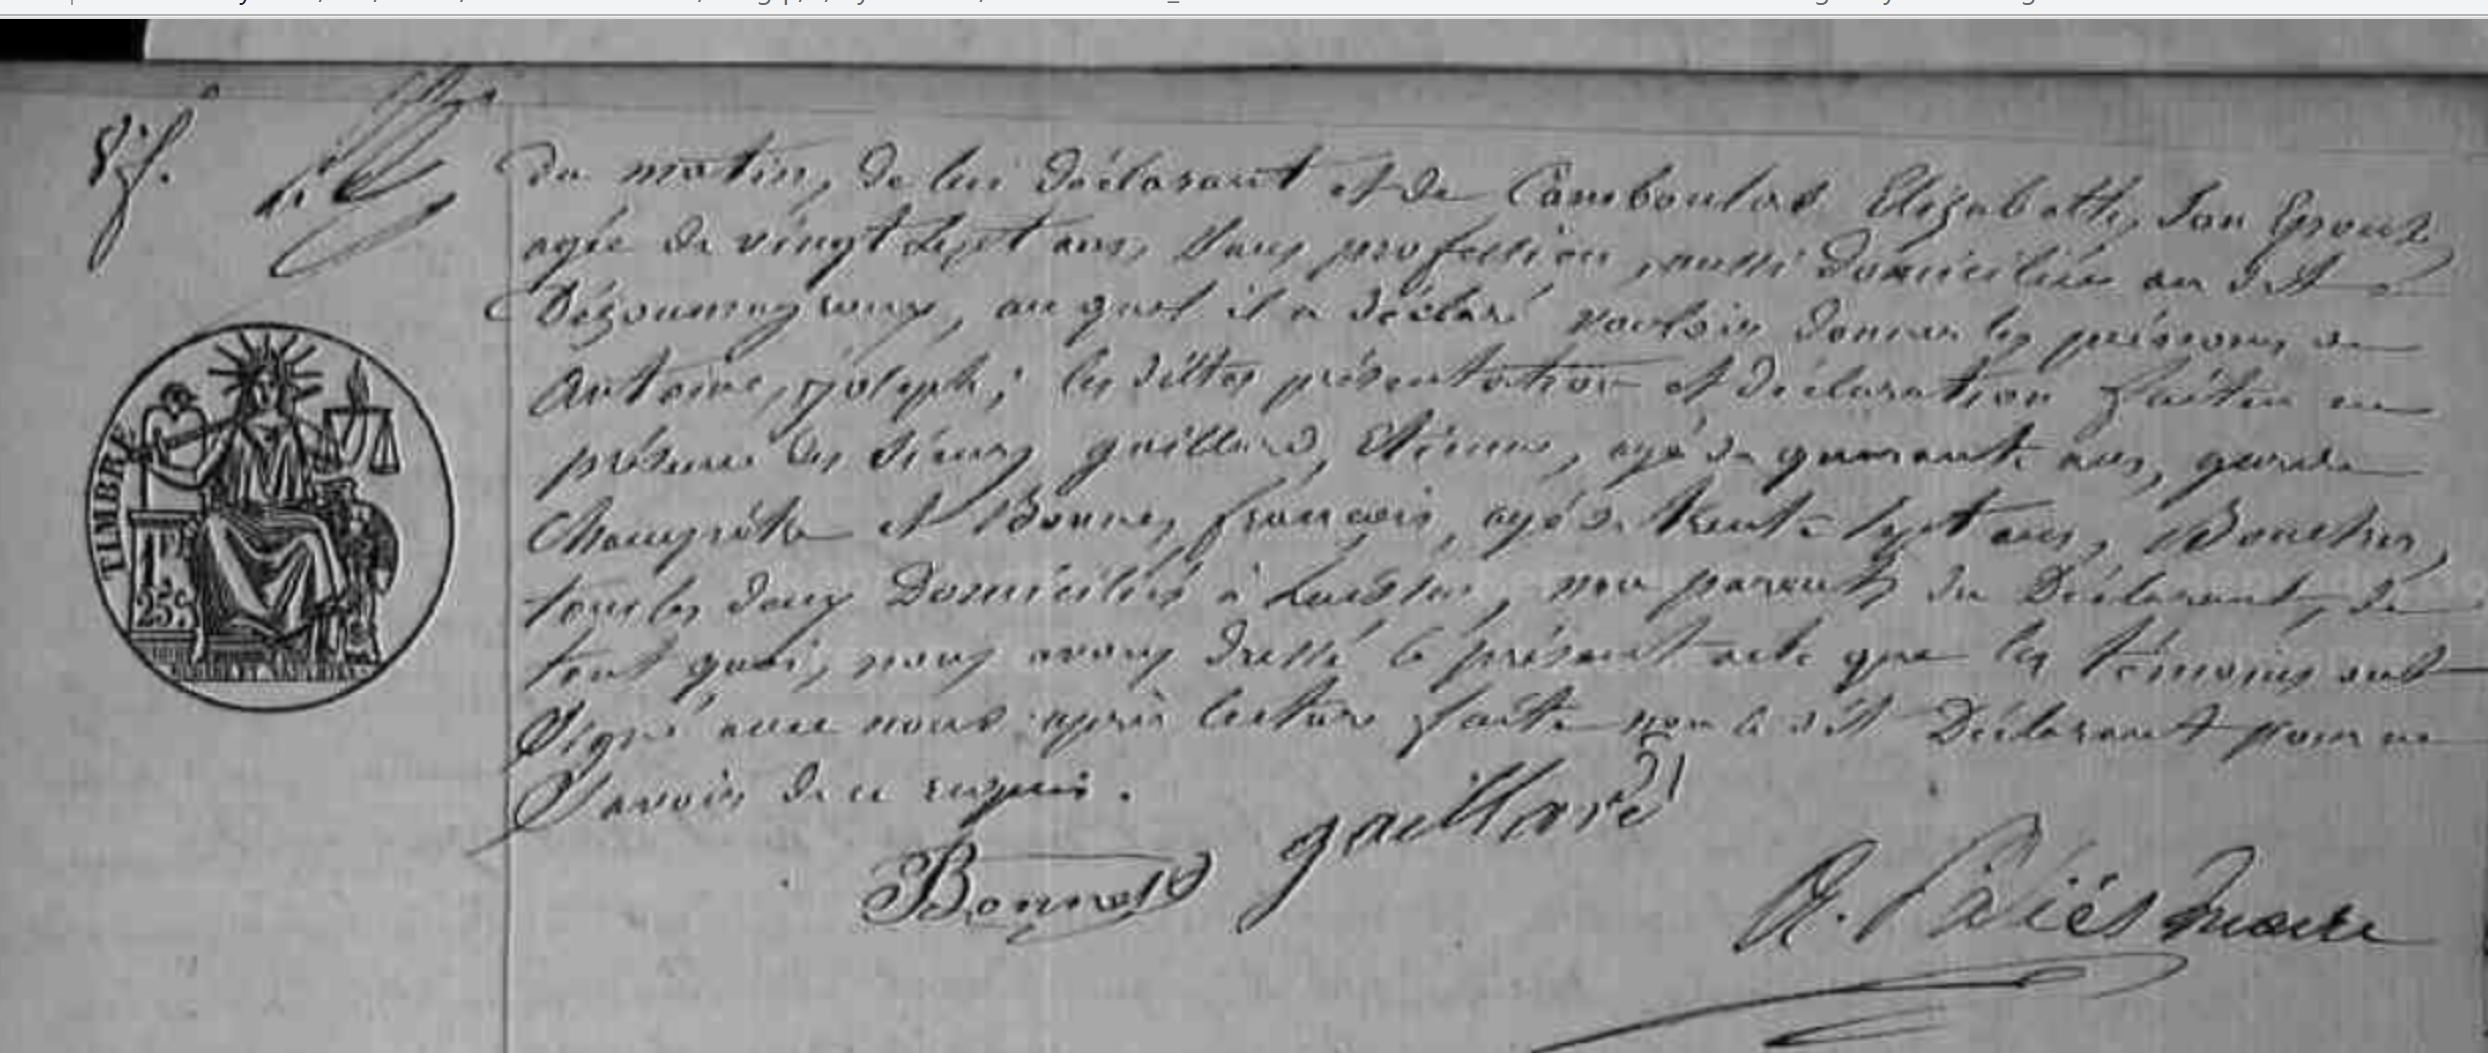 8 f.
du matin, de lui déclarant et de Camboulas Elizabeth, son Epouse
agée de vingt sept ans, sans profession, aussi domiciliée au dit
auquel il a déclaré vouloir donner les prénoms de
Antoine, Joseph; les dittes présentation et déclaration faites en
présence des sieurs gaillard, Etienne, agé de quarante ans, garde
Champêtre et Bonnet, françois, agé de trente sept ans, Boucher,
tous les deux Domiciliés à non parents du Déclarant, de
tout quoi, nous avons dressé le présent acte que les témoins ont
Signé avec nous après lecture faite non le dit Déclarant pour ne
Savoir de ce requis.
gaillard
Bonnet
maire
TIMBRE
25c